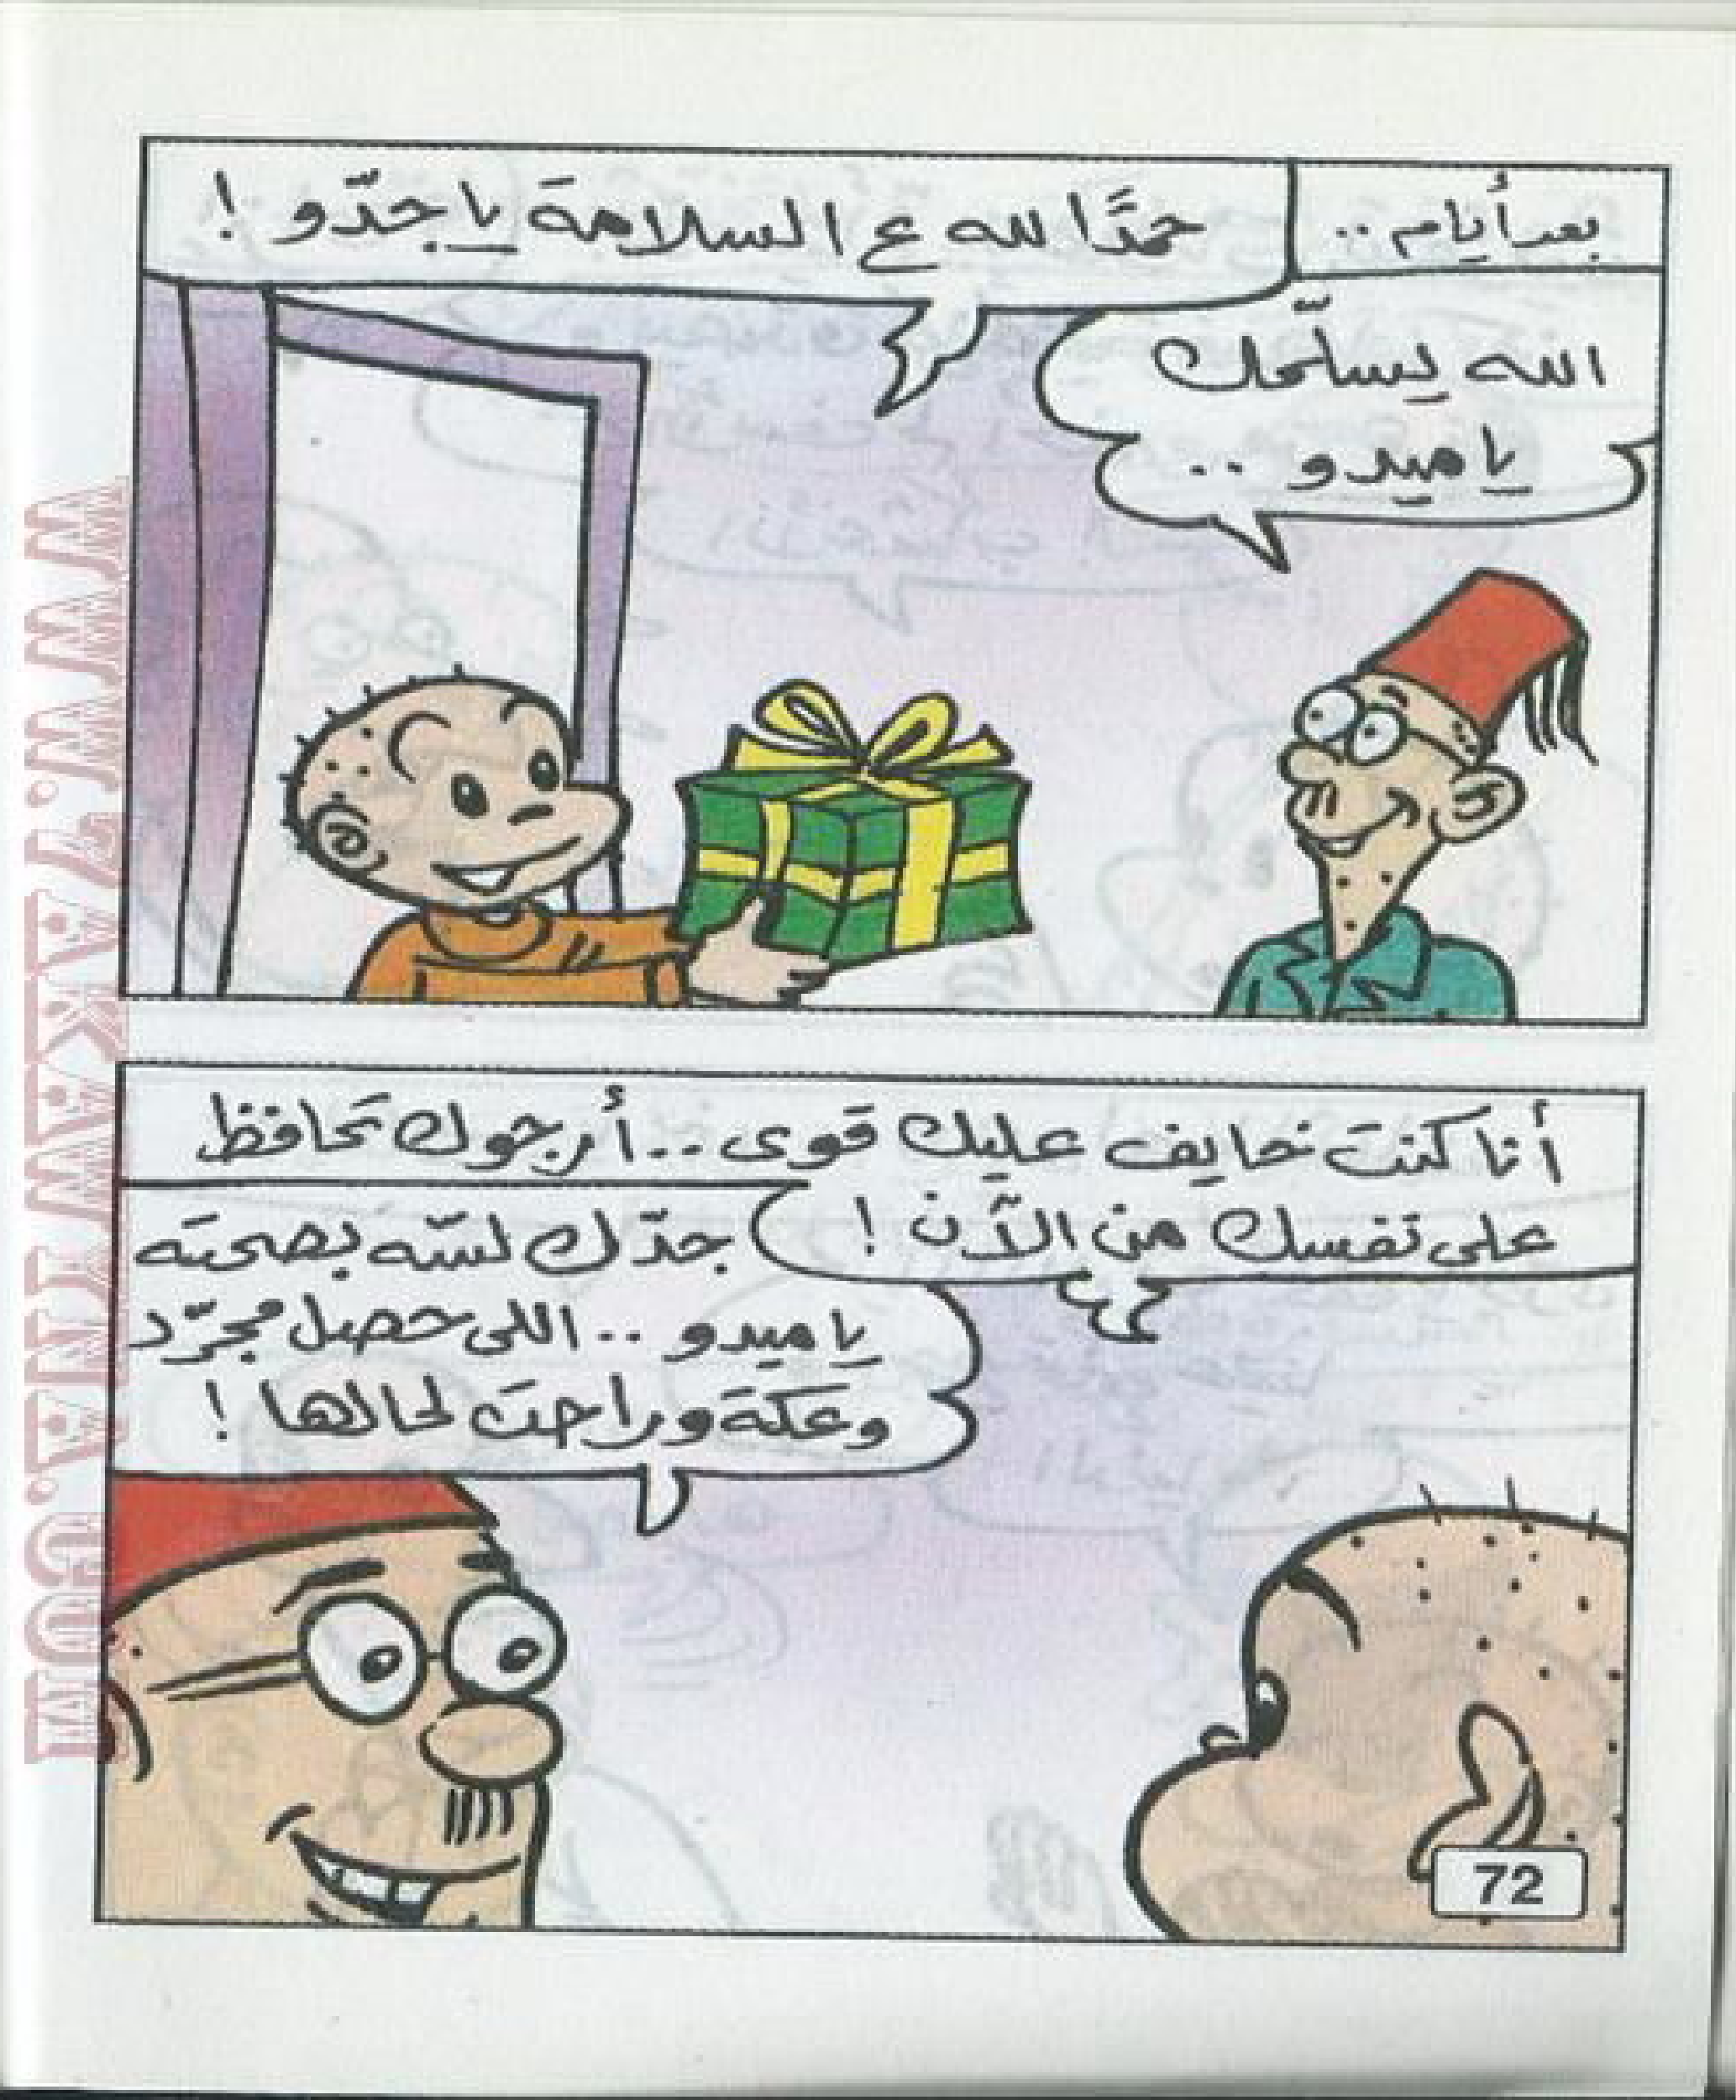 بعد أيام ..
حمدًا لله ع السلامة يا جدّو !
الله يسلّمك
يا ميدو ..
أنا كنت خايف عليك قوى .. أرجوك تحافظ
على نفسك من الآن !
جدّك لسّه بصحته
يا ميدو .. اللى حصل مجرّد
وعكة وراحت لحالها !
72
WWW.7AKAWINA.COM